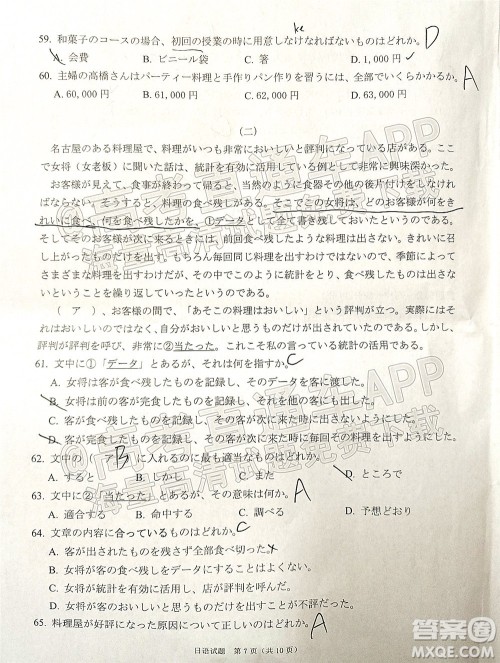 59. 和菓子のコースの場合、初回の授業の時に用意しなけなければならないものはどれか。 D
ke
A. 会費 B. ビニール袋 C. 箸 D. 1,000 円
60. 主婦の高橋さんはパーティー料理と手作りパン作りを習うには、全部でいくらかかるか。 A
A. 60,000 円 B. 61,000 円 C. 62,000 円 D. 63,000 円
(二)
名古屋のある料理屋で、料理がいつも非常においしいと評判になっている店がある。ここ
で女将（女老板）に聞いた話は、統計を有効に活用している例として非常に興味深かった。
お客様が、食事をすませて帰ると、当然のように食器その他の後片付けをしなければ
ならない。そうすると、料理の食べ残しがある。そこでこの女将は、どのお客様が何をき
れいに食べ、何を食べ残したかを、①データとして全て書き残しておいたというのである。
そしてそのお客様が次に来るときには、前回食べ残したような料理は出さない。きれいに召
し上がったものをお出しする。もちろん毎回同じ料理を出すわけではないので、季節によって
さまざまな料理を出すわけだが、そこでこのような統計をとり、食べ残したものは出さな
いということを繰り返したというのである。
（ ア ）、お客様の間で、「あそこの料理はおいしい」という評判が立つ。実際にはそ
れはおいしいのではなく、自分がおいしいと思うものだけが出されているわけだ。しかし、
評判が評判を呼び、非常に②当たった。これが統計の活用である。
61. 文中に①「データ」とあるが、それは何を指すか。 C
A. 女将は客が食べ残したものを記録し、それを客が次に来た時に出さないようにした。
B. 女将は前の客が完食したものを記録し、次の客に出すようにした。
C. 客が食べ残したものと完食したものを記録し、その客が次に来た時に出さないようにした。
D. 客が完食したものを記録し、その客が次に来た時に出すようにした。
62. 文中の（ ア ）に入れるのに最も適当なものはどれか。 B
A. すると B. しかし C. また D. ところで
63. 文中に②「当たった」とあるが、その意味は何か。 A
A. 適合する B. 命中する C. 調べる D. 予想どおり
64. 文章の内容に合っているものはどれか。 C
A. 客が出されたものを残さず全部食べ切った。
B. 女将が客の食べ残しをデータにすることはよくない。
C. 女将が統計を有効に活用し、店が評判を呼んだ。
D. 女将が客のおいしいと思うものだけを出すことが不評だった。
65. 料理屋が好評になった原因について正しいのはどれか。 A
日语试题 第 7 页（共 10 页）
答案圈